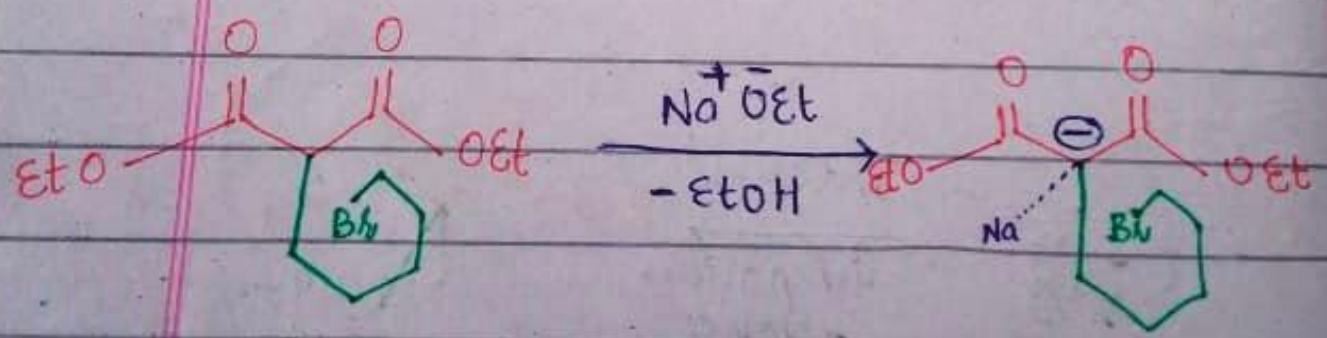 O O
EtO OEt
Br
Na⁺ ⁻OEt
- EtOH
O O
⊖
EtO OEt
Na Br